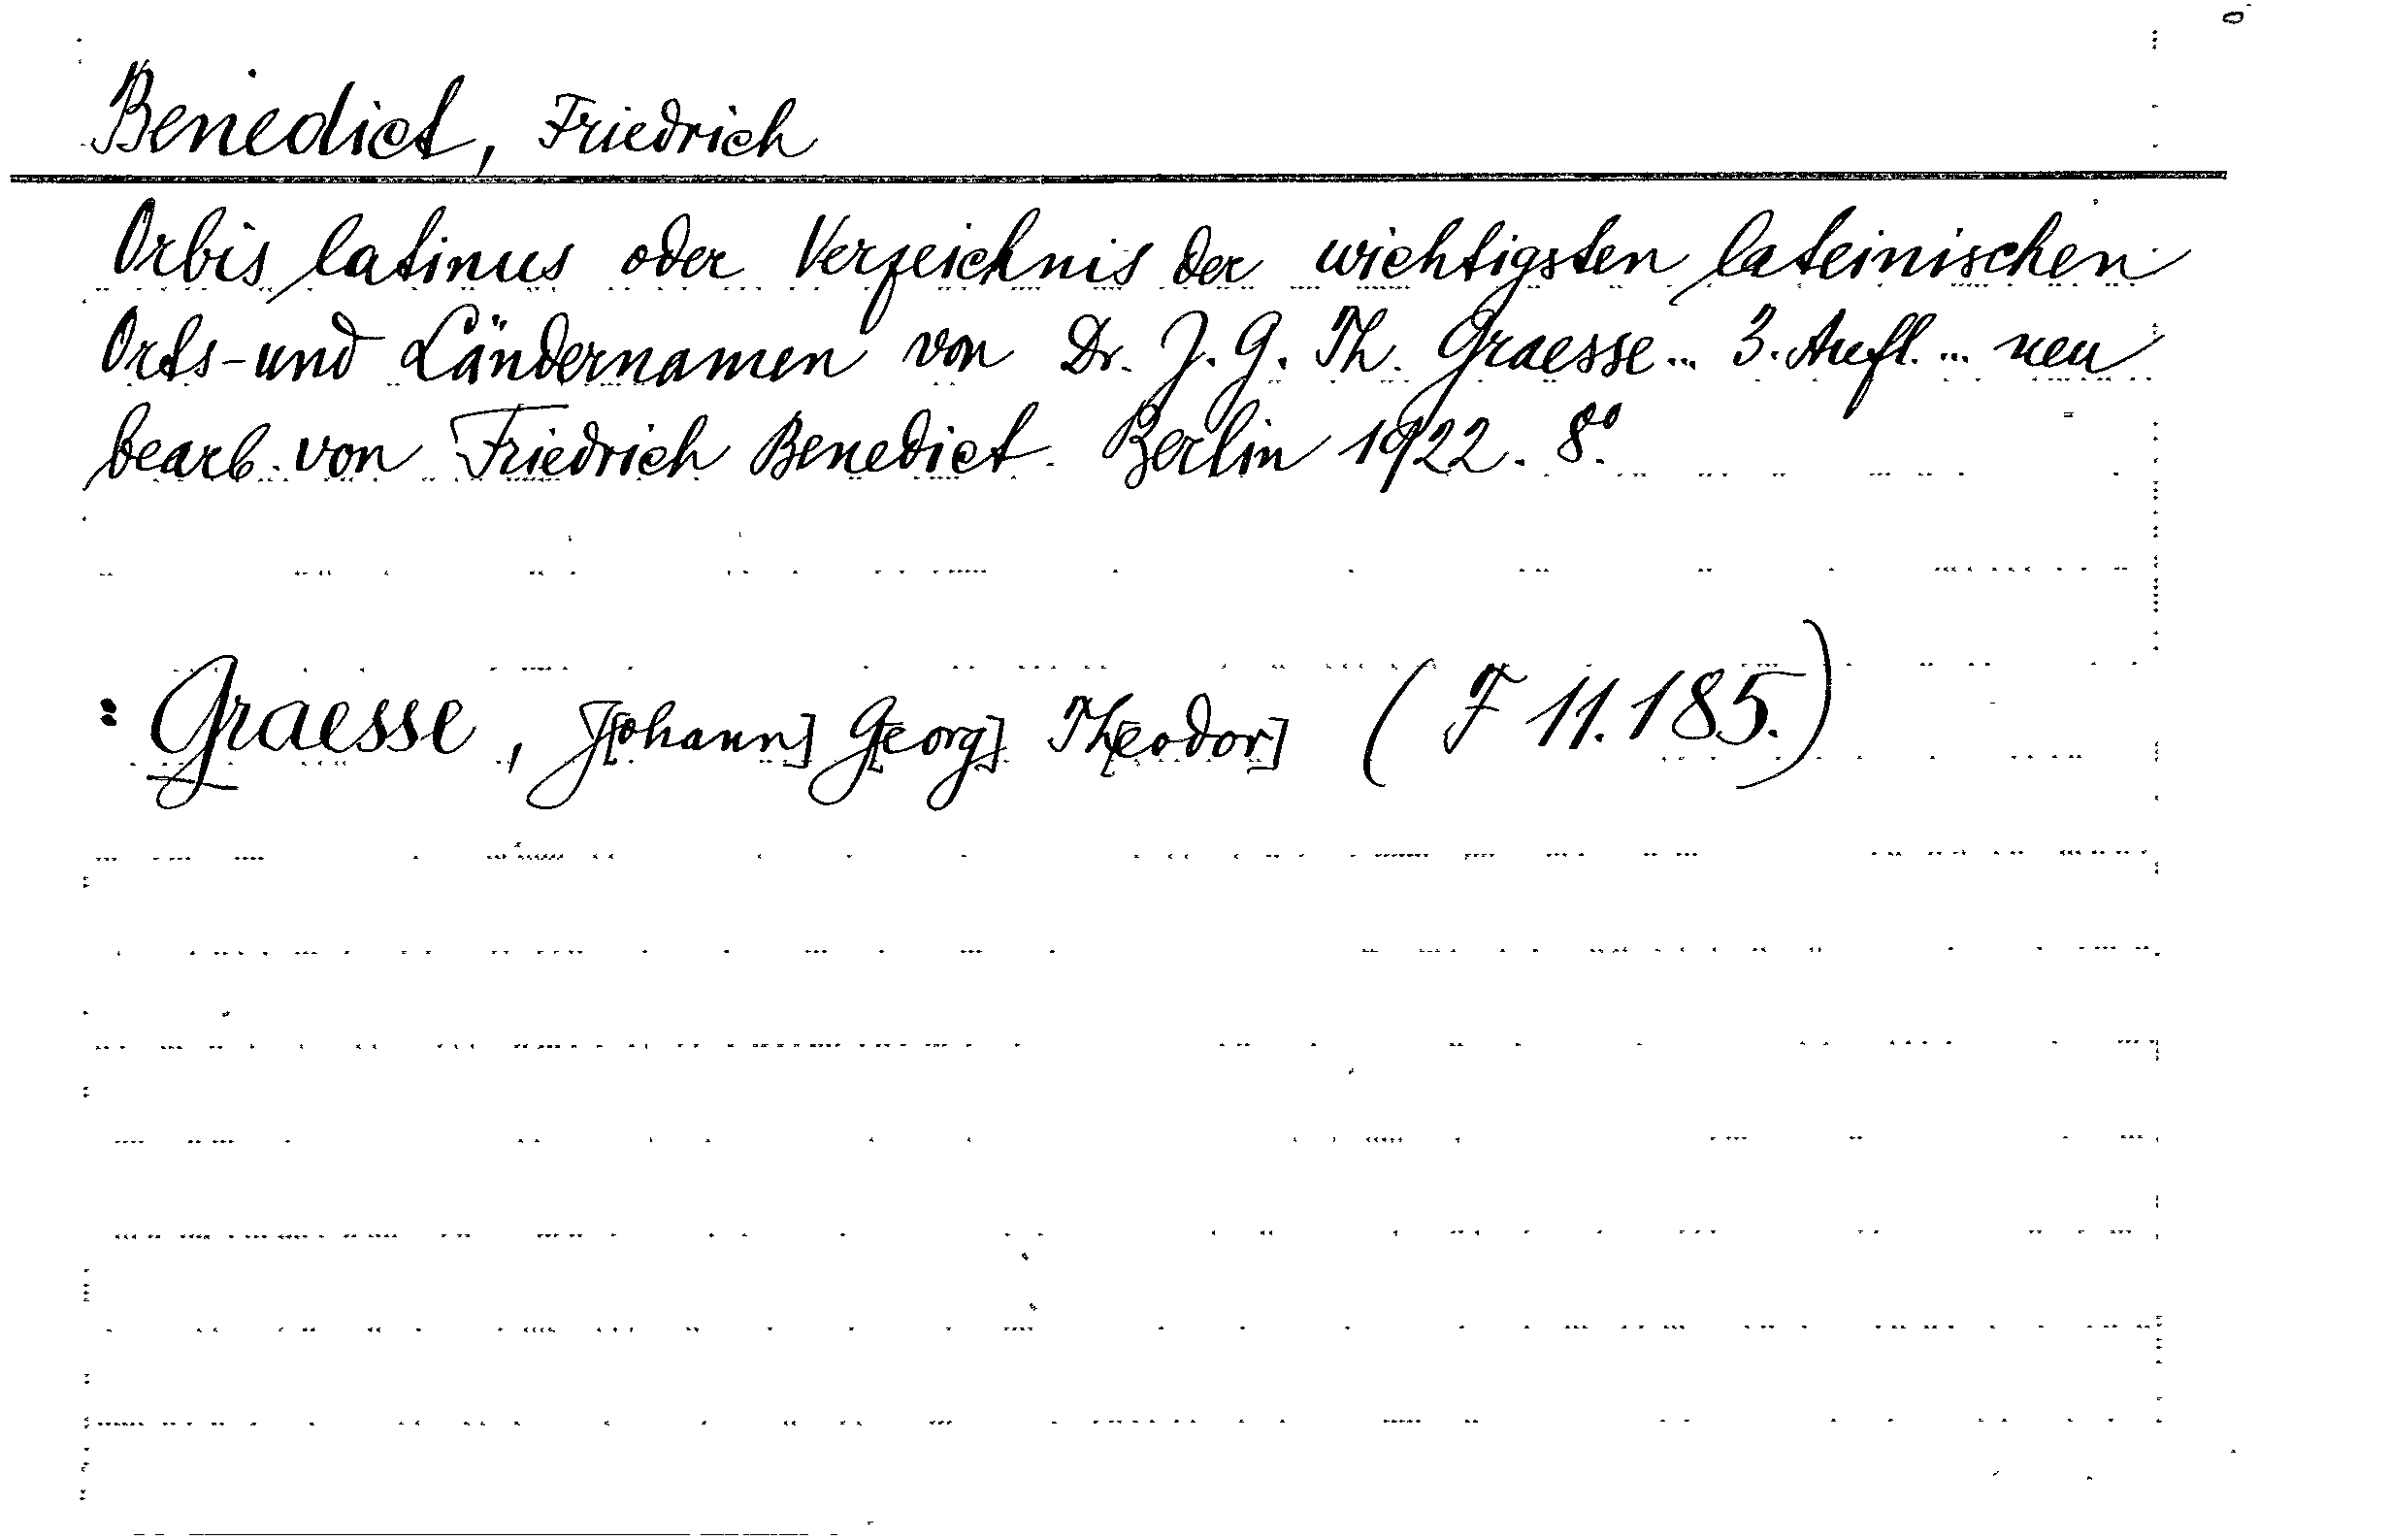 Benedict, Friedrich
Orbis latinus oder Verzeichnis der wichtigsten lateinischen
Orts- und Ländernamen von Dr. J. G. Th. Graesse... 3. Aufl. ... neu
bearb. von Friedrich Benedict. Berlin 1922. 8°.
: Graesse, J[ohann] G[eorg] Th[eodor] (F 11.185.)